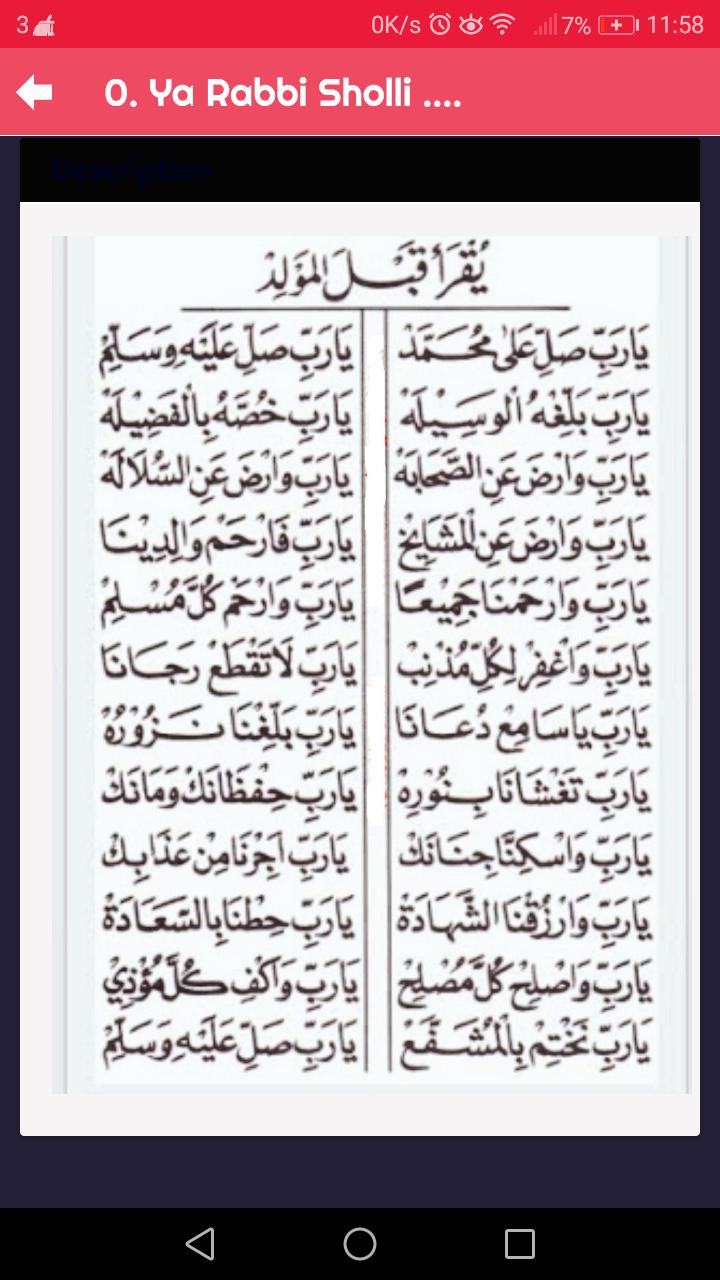 3 0K/s 7% 11:58
0. Ya Rabbi Sholli ....
Description
يُقْرَأُ قَبْلَ الْمَوْلِدْ
يَارَبِّ صَلِّ عَلىٰ مُحَمَّدْ يَارَبِّ صَلِّ عَلَيْهِ وَسَلِّمْ
يَارَبِّ بَلِّغْهُ الْوَسِيْلَهْ يَارَبِّ خُصَّهُ بِالْفَضِيْلَهْ
يَارَبِّ وَارْضَ عَنِ الصَّحَابَهْ يَارَبِّ وَارْضَ عَنِ السُّلَالَهْ
يَارَبِّ وَارْضَ عَنِ الْمَشَايِخْ يَارَبِّ فَارْحَمْ وَالِدِيْنَا
يَارَبِّ وَارْحَمْنَا جَمِيْعًا يَارَبِّ وَارْحَمْ كُلَّ مُسْلِمْ
يَارَبِّ وَاغْفِرْ لِكُلِّ مُذْنِبْ يَارَبِّ لَا تَقْطَعْ رَجَانَا
يَارَبِّ يَا سَامِعْ دُعَانَا يَارَبِّ بَلِّغْنَا نَزُوْرُهْ
يَارَبِّ تَغْشَانَا بِنُوْرِهْ يَارَبِّ حِفْظَانَكْ وَمَانَكْ
يَارَبِّ وَاسْكِنَّا جِنَانَكْ يَارَبِّ اَجِرْنَا مِنْ عَذَابِكْ
يَارَبِّ وَارْزُقْنَا الشَّهَادَةْ يَارَبِّ حِطْنَا بِالسَّعَادَةْ
يَارَبِّ وَاصْلِحْ كُلَّ مُصْلِحْ يَارَبِّ وَاكْفِ كُلَّ مُؤْذِيْ
يَارَبِّ نَخْتِمْ بِالْمُشَفَّعْ يَارَبِّ صَلِّ عَلَيْهِ وَسَلِّمْ